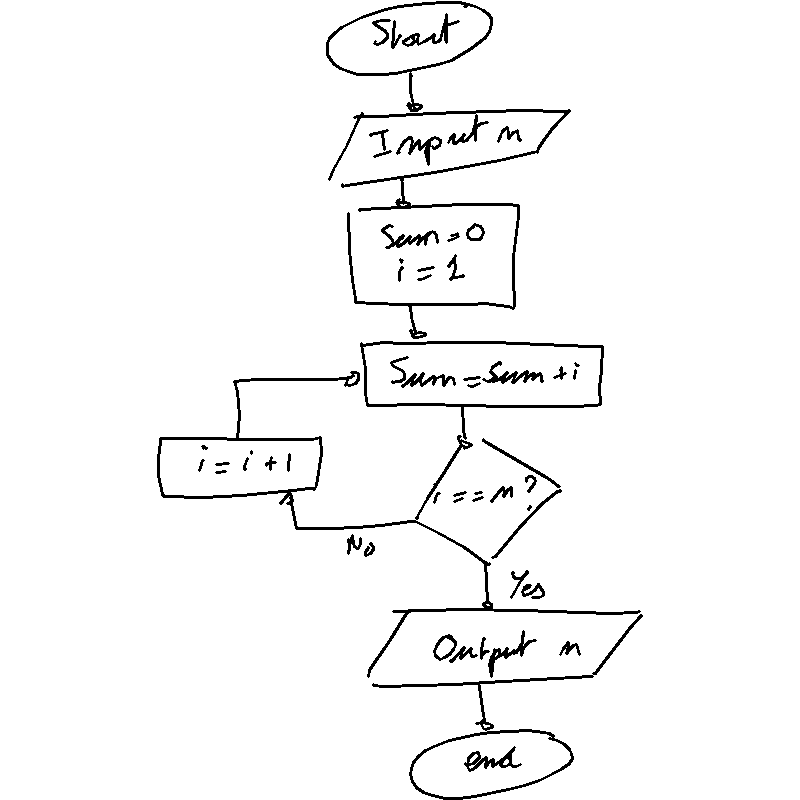 Start
Input n
Sum=0
i = 1
Sum=Sum+i
i = i + 1
i == n?
No
Yes
Output n
end